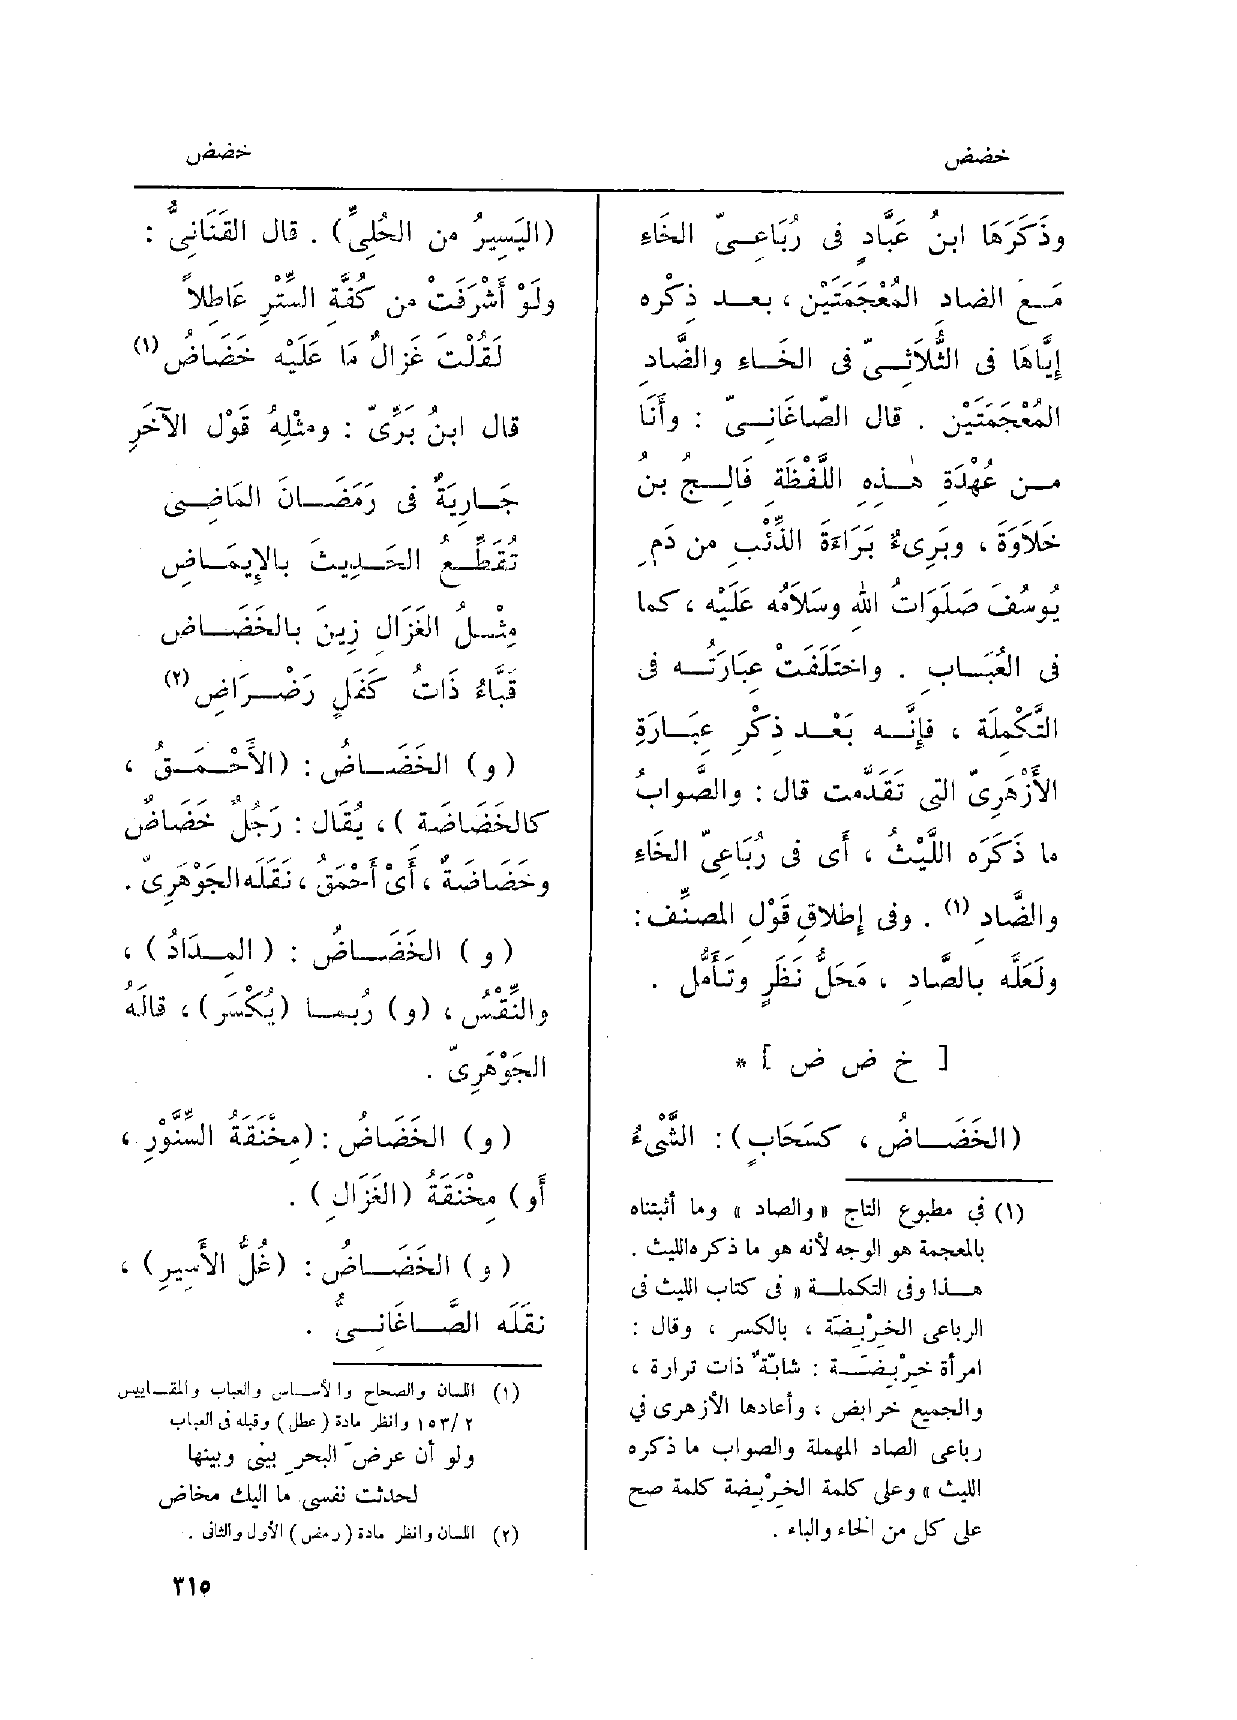 خضض
خضض
وذَكَرَهَا ابنُ عَبَّادٍ فى رُبَاعِــىّ الخَاءِ
مَــع الضادِ المُعْجَمَتَيْن ، بعــد ذِكْره
إِيَّاهَا فى الثُّلاَثِــىّ فى الخَــاءِ والضَّادِ
المُعْجَمَتَيْن . قال الصّاغَانِــىّ : وأَنَا
مِــن عُهْدَةِ هٰــذِه اللَّفْظَةِ فَالِــجُ بنُ
خَلاَوَةَ ، وبَرِىءٌ بَرَاءَةَ الذِّئْبِ من دَمِ
يُوسُفَ صَلَوَاتُ الله وسَلاَمُه عَلَيْه ، كما
فى العُبَــاب . واخْتَلَفَتْ عِبَارَتُــه فى
التَّكْمِلَة ، فإِنَّــه بَعْــد ذِكْرِ عِبَــارَةِ
الأَزْهَرِىّ التى تَقَدَّمَت قال : والصَّوابُ
ما ذَكَرَه اللَّيْثُ ، أَى فى رُبَاعِىّ الخَاءِ
والضَّاد (١) . وفى إِطْلاقِ قَوْلِ المصنِّف :
ولَعَلَّه بالصَّادِ ، مَحَلُّ نَظَرٍ وتَأَمُّل .
[ خ ض ض ] *
(الخَضَــاضُ ، كسَحَابٍ) : الشَّىْءُ
(١) فى مطبوع التاج « والصاد » وما أثبتناه
بالمعجمة هو الوجه لأنه هو ما ذكره الليث .
هــذا وفى التكملــة « فى كتاب الليث فى
الرباعى الخِرْبِضَة ، بالكسر ، وقال :
امرأة خِرْبِضَــة : شابّةٌ ذات ترارة ،
والجميع خرابض ، وأعادها الأزهرى في
رباعى الصاد المهملة والصواب ما ذكره
الليث » وعلى كلمة الخِرْبِضة كلمة صح
على كل من الخاء والباء .
(اليَسِيرُ من الحُلِىِّ) . قال القَنَانِىُّ :
ولَوْ أَشْرَفَتْ من كُفَّةِ السِّتْرِ عَاطِلاً
لَقُلْتَ غَزالٌ مَا عَلَيْه خَضَاضُ (١)
قال ابنُ بَرِّىّ : ومثْلهُ قَوْل الآخَرِ
جَــارِيَةٌ فى رَمَضَــانَ المَاضِــى
تُقَطِّــعُ الحَــدِيثَ بالإِيمَــاضِ
مِثْــلُ الغَزَالِ زِينَ بالخَضَــاضِ
قَبَّاءُ ذَاتُ كَفَلٍ رَضْــرَاضِ (٢)
( و ) الخَضَــاضُ : (الأَحْــمَــقُ ،
كالخَضَاضَةِ ) ، يُقَال : رَجُلٌ خَضَاضٌ
وخَضَاضَةٌ ، أَىْ أَحْمَقُ ، نَقَلَه الجَوْهَرِىّ .
( و ) الخَضَــاضُ : ( المِــدَادُ ) ،
والنِّقْسُ ، (و) رُبمــا (يُكْسَر) ، قالَهُ
الجَوْهَرِىّ .
( و ) الخَضَاضُ : (مِخْنَقَةُ السِّنَّوْرِ ،
أَو) مِخْنَقَةُ (الغَزَالِ ) .
( و ) الخَضَــاضُ : (غُلُّ الأَسِيرِ) ،
نقَلَه الصَّــاغَانِــىُّ .
(١) اللسان والصحاح والأســاس والعباب والمقــاييس
٢ /١٥٣ وانظر مادة (عطل) وقبله فى العباب
ولو أن عرضَ البحرِ بيْنى وبينها
لحدثت نفسى ما اليك مخاض
(٢) اللسان وانظر مادة (رمض) الأول والثانى .
٣١٥